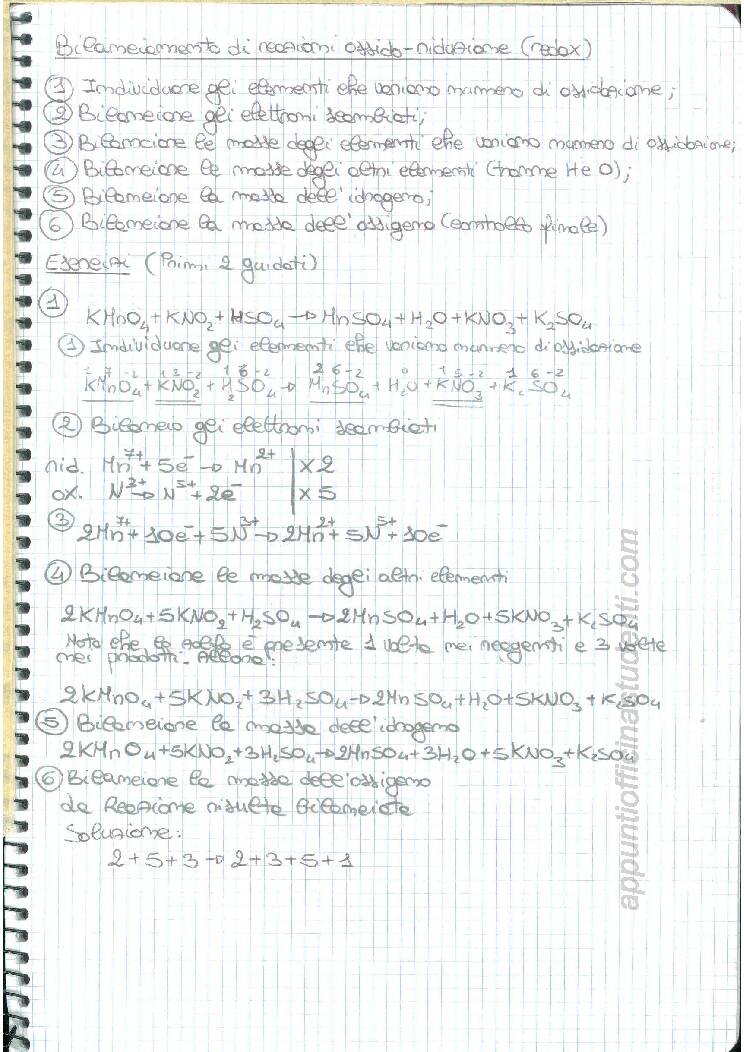 Bilanciamento di reazioni ossido-riduzione (redox)
1 Individuare gli elementi che variano numero di ossidazione;
2 Bilanciare gli elettroni scambiati;
3 Bilanciare le masse degli elementi che variano numero di ossidazione;
4 Bilanciare le masse degli altri elementi (tranne H e O);
5 Bilanciare la massa dell'idrogeno;
6 Bilanciare la massa dell'ossigeno (controllo finale)
Esercizi (Primi 2 guidati)
1
KMnO4 + KNO2 + HSO4 → MnSO4 + H2O + KNO3 + K2SO4
1 Individuare gli elementi che variano numero di ossidazione
1 7 -2 1 3 -2 1 6 -2 2 6 -2 0 1 5 -2 1 6 -2
KMnO4 + KNO2 + H2SO4 → MnSO4 + H2O + KNO3 + K2SO4
2 Bilancio gli elettroni scambiati
rid. Mn7+ + 5e- → Mn2+ | x2
ox. N3+ → N5+ + 2e- | x5
3 2Mn7+ + 10e- + 5N3+ → 2Mn2+ + 5N5+ + 10e-
4 Bilanciare le masse degli altri elementi
2KMnO4 + 5KNO2 + H2SO4 → 2MnSO4 + H2O + 5KNO3 + K2SO4
Nota che lo zolfo è presente 1 volta nei reagenti e 3 volte
nei prodotti. Allora:
2KMnO4 + 5KNO2 + 3H2SO4 → 2MnSO4 + H2O + 5KNO3 + K2SO4
5 Bilanciare la massa dell'idrogeno
2KMnO4 + 5KNO2 + 3H2SO4 → 2MnSO4 + 3H2O + 5KNO3 + K2SO4
6 Bilanciare la massa dell'ossigeno
La Reazione risulta bilanciata
Soluzione:
2 + 5 + 3 → 2 + 3 + 5 + 1
appuntiofficinastudenti.com